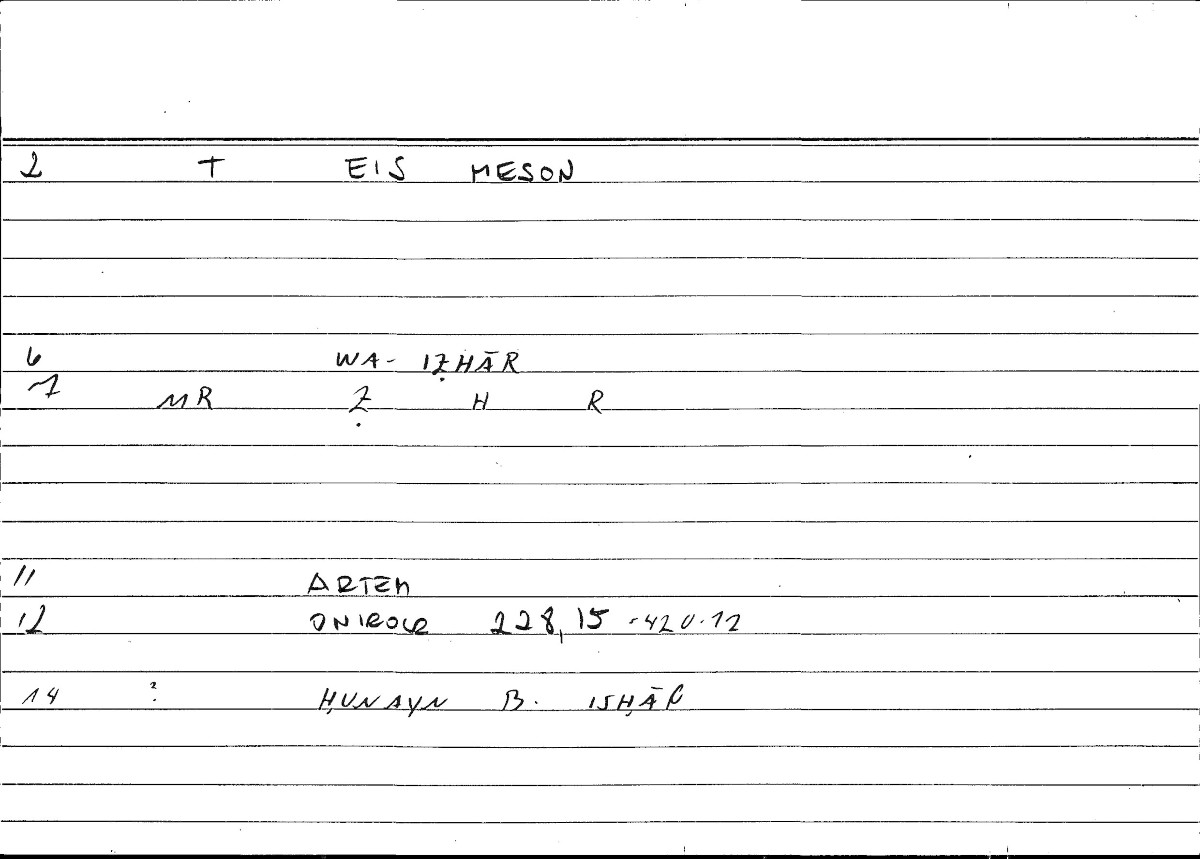 2 T EIS MESON
6 WA- IẒHĀR
7 MR Ẓ H R
11 ARTEM
12 ONIROCR 228,15 -420.12
14 ? ḤUNAYN B. ISḤĀḲ